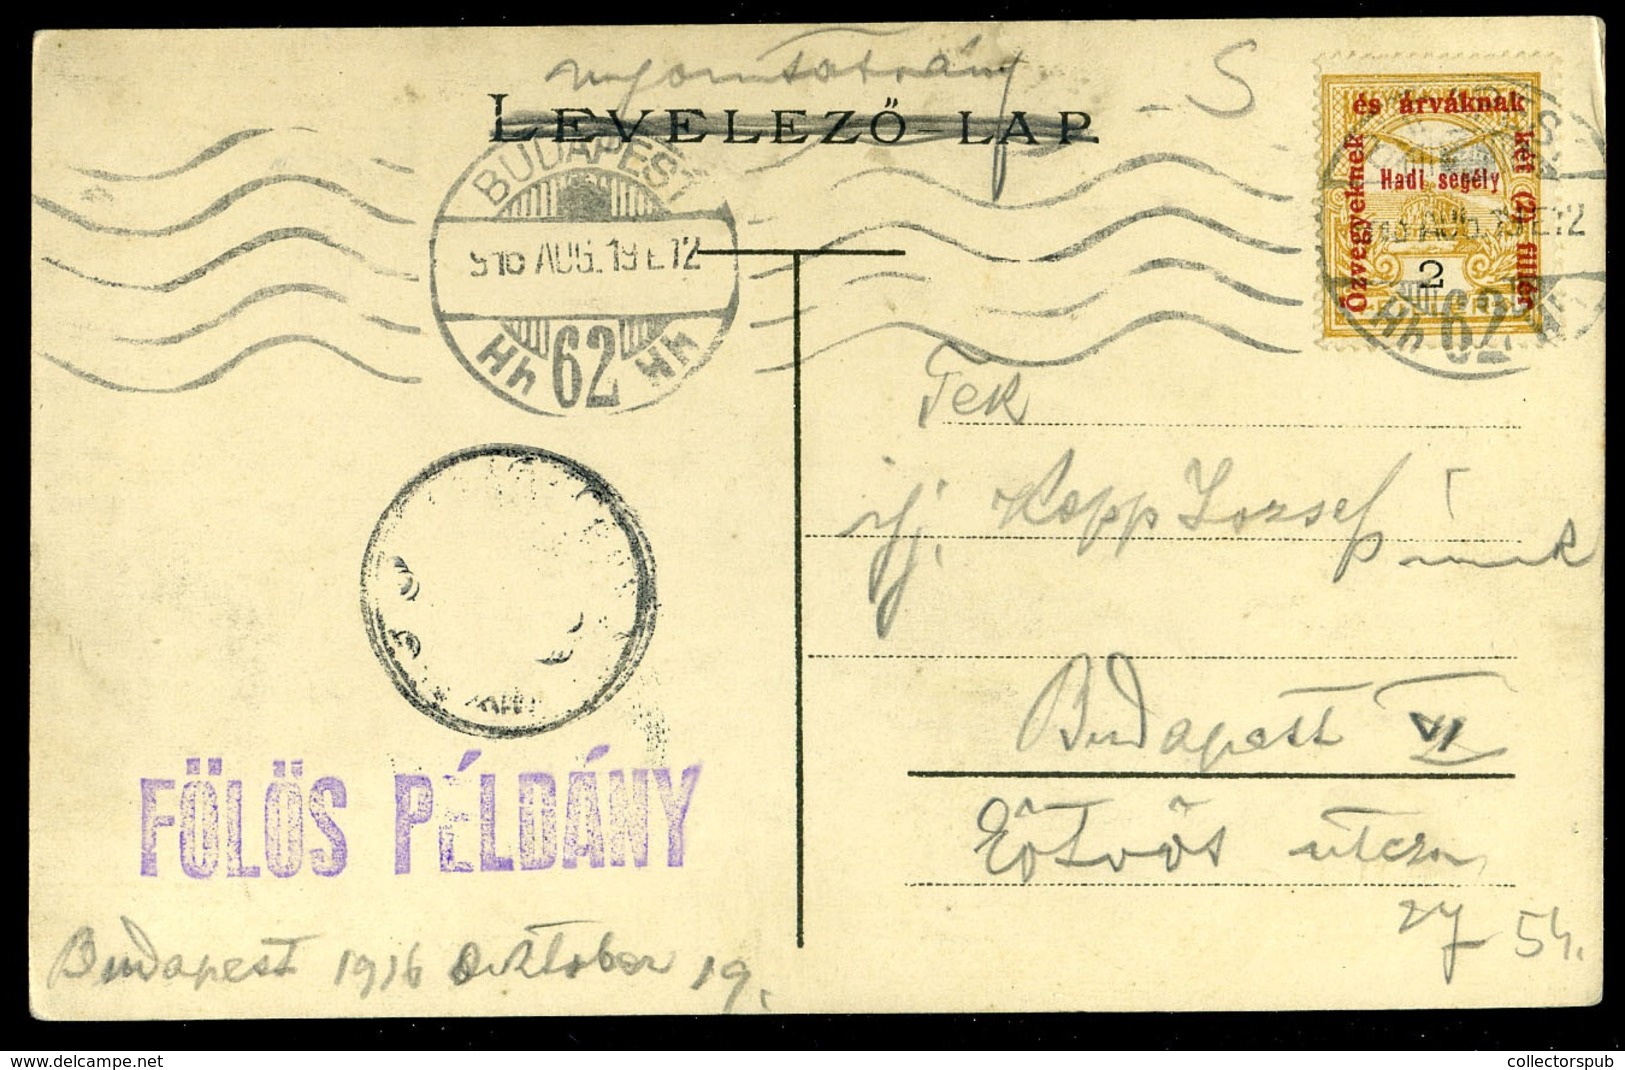 nyomtatvány
LEVELEZŐ-LAP
- S
és árváknak
Özvegyeknek
két (2) fillér
Hadi segély
2
BUDAPEST
916 AUG. 19 E 12
Hh 62 Hh
916 AUG. 19 E 12
Hh 62
Tek
ifj. Kopp József
úrnak
Budapest VI
Eötvös utcza
27
54.
FÖLÖS PÉLDÁNY
Budapest 1916 Oktober 19.
collectorspub